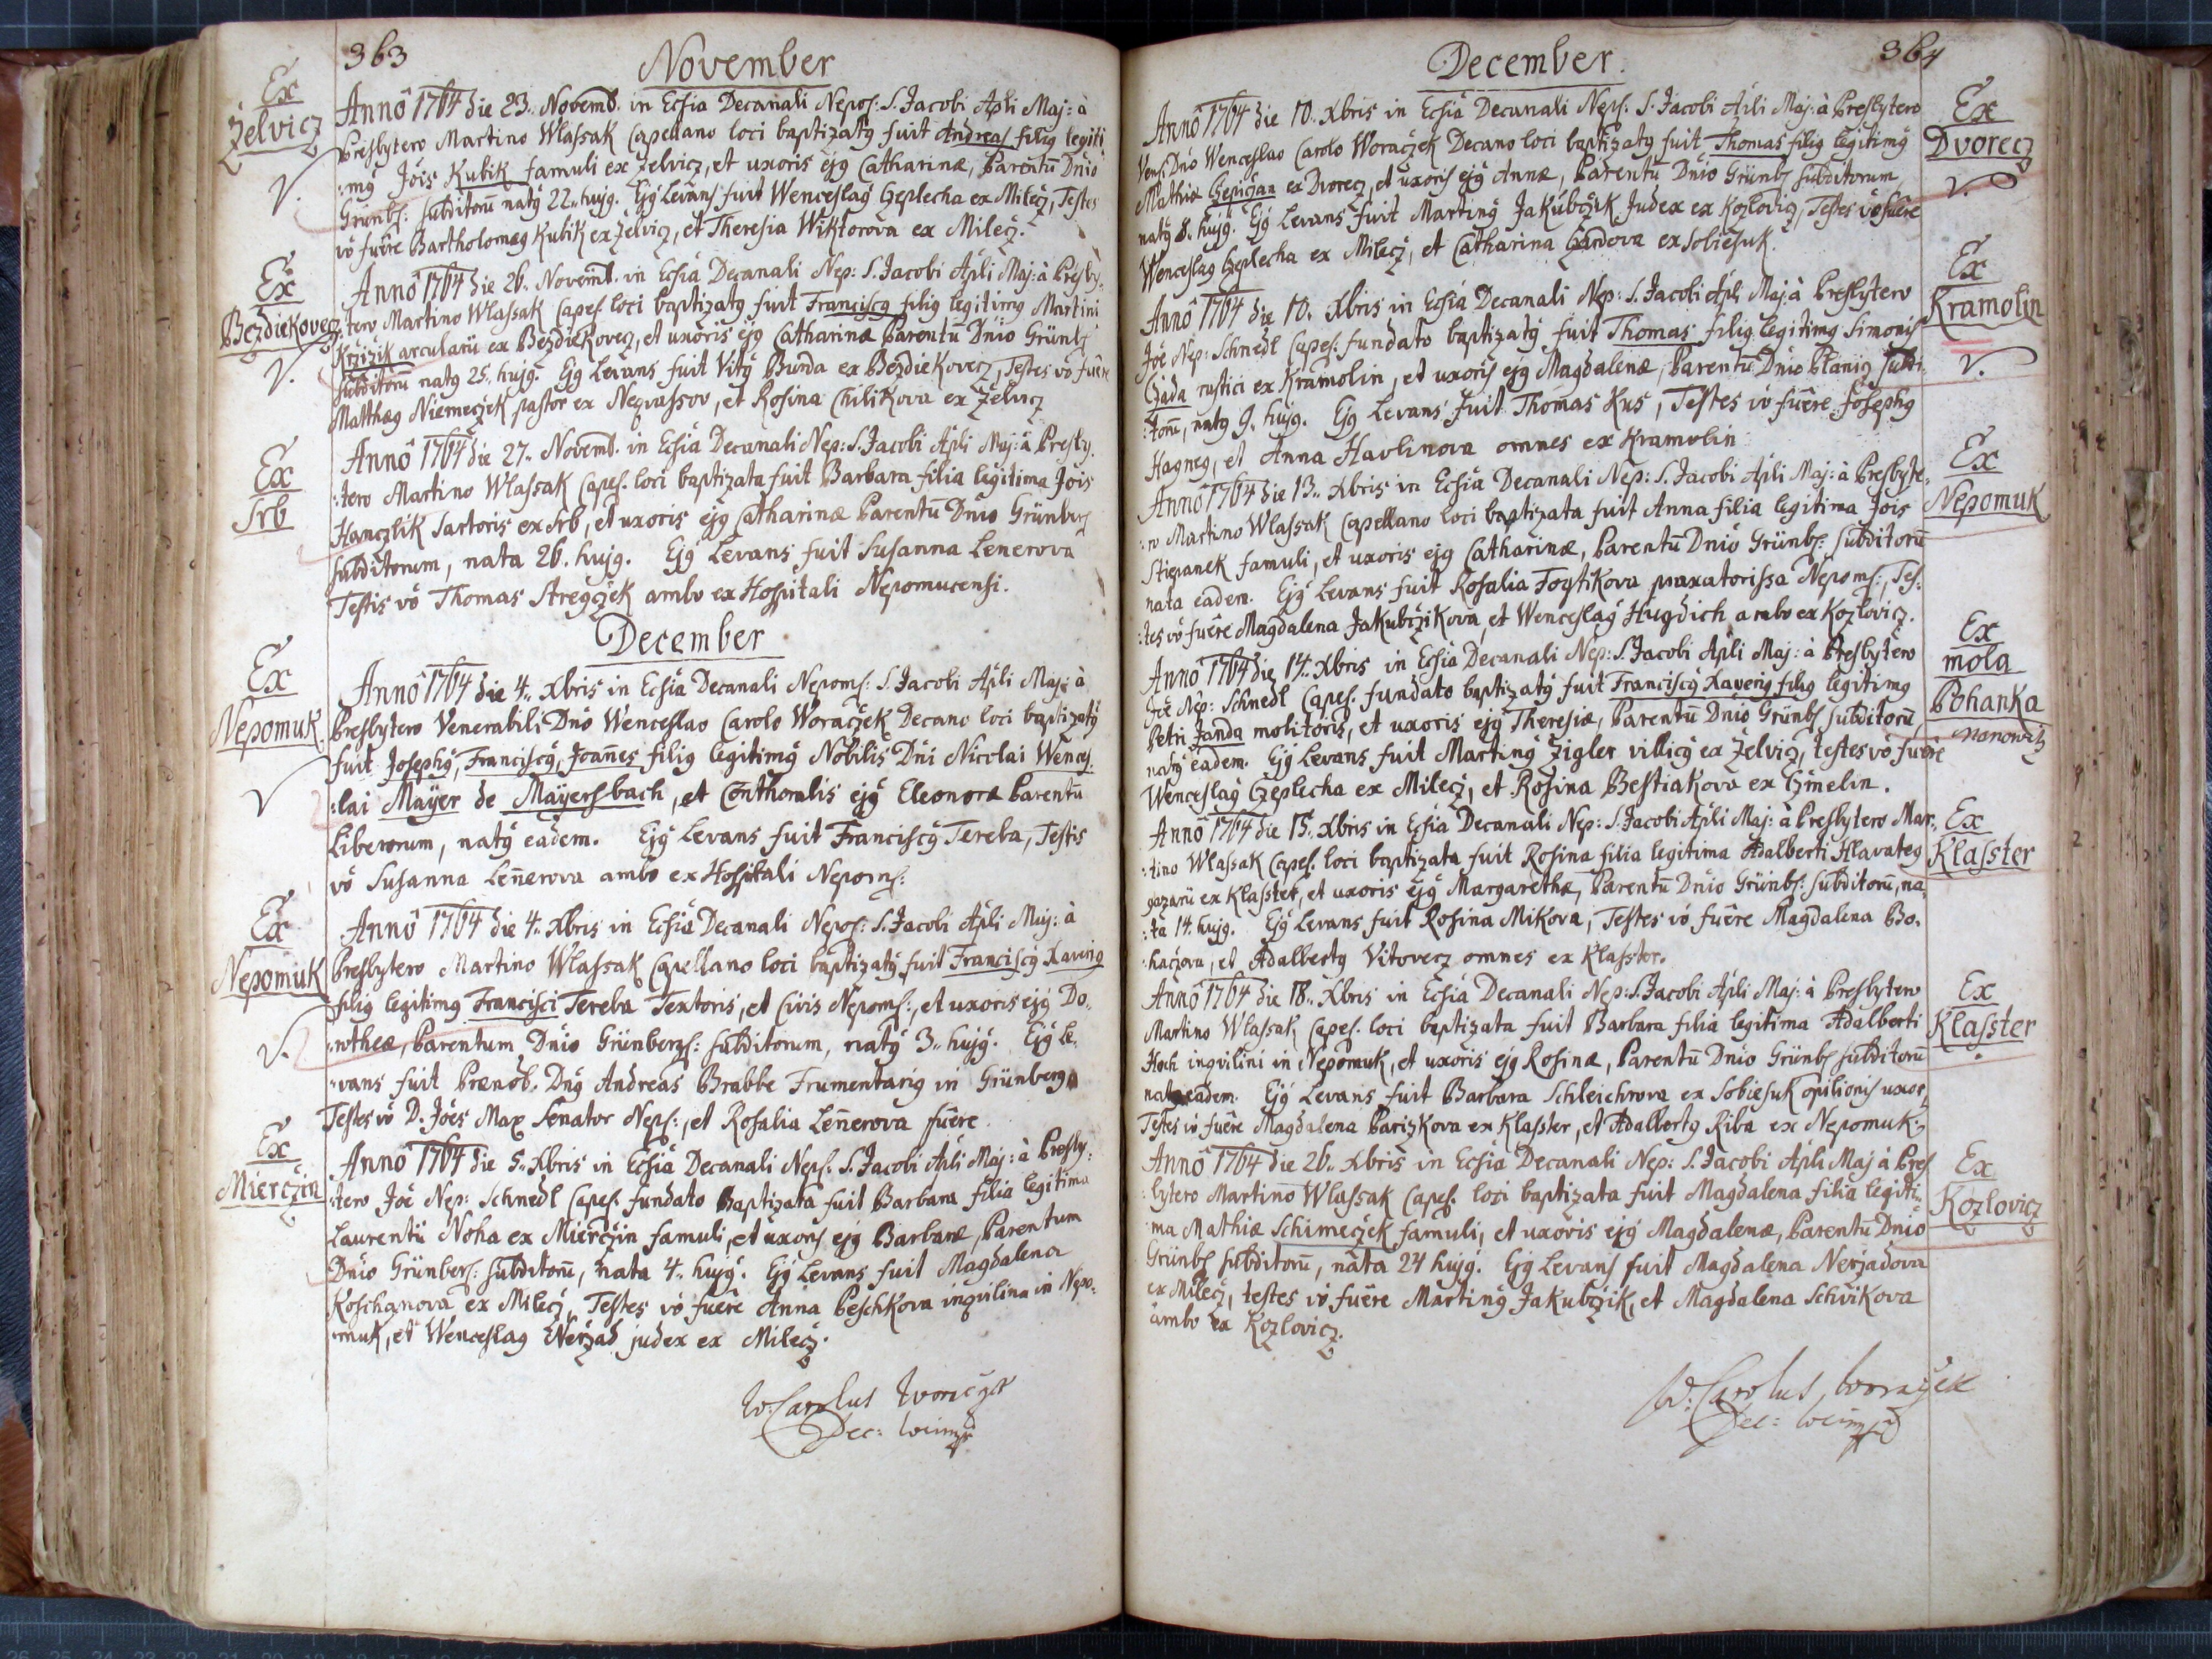 363
November
Ex
Zelvicz
V.
Annô 1764 die 23. Novemb. in Ecĺsia Decanali Nepos: S. Jacobi Apli Maj: à
Presbytero Martino Wlassak Capellano loci baptizatq fuit Andreas filiq legiti
:mq Jois Kubik famuli ex Zelvicz, et uxoris ejq Catharinæ, Parentū Dnio
Grünbs: subditorū natq 22. hujq. Ejq Levans fuit Wenceslaq Czeplecha ex Milecz, Testes
vô fuêre Bartholomæq Kubik ex Zelvicz, et Theresia Wiktorova ex Milecz.
Ex
Bezdiekovecz
V.
Annô 1764 die 26. Novemb. in Ecĺsia Decanali Nep: S. Jacobi Apli Maj: à Presby
:tero Martino Wlassak Capes. loci baptizatq fuit Franciscq filiq legitimq Martini
Krzizik arcularii ex Bezdiekovecz, et uxoris ejq Catharinæ Parentū Dnio Grünbs
subditorū natq 25. hujq. Ejq Levans fuit Vitq Burda ex Bezdiekovecz, Testes vô fuêre
Matthæq Niemeczek pastor ex Neqvassov, et Rosina Chilikova ex Zelvicz
Ex
Srb
Annô 1764 die 27. Novemb. in Ecĺsia Decanali Nep: S. Jacobi Apli Maj: à Presby.
:tero Martino Wlassak Capes. loci baptizata fuit Barbara filia legitima Jois
Hanczlik Sartoris ex Srb, et uxoris ejq Catharinæ Parentū Dnio Grünbers
subditorum, nata 26. hujq. Ejq Levans fuit Susanna Lenerova
Testis vô Thomas Stregczek ambo ex Hospitali Nepomucensi.
December
Ex
Nepomuk
V
Annô 1764 die 4. Xbris in Ecĺsia Decanali Nepoms: S. Jacobi Apli Maj: à
Presbytero Venerabili Dnō Wenceslao Carolo Woraczek Decano loci baptizatq
fuit Josephq, Franciscq, Joañes filiq legitimq Nobilis Dni Nicolai Wences
:lai Maÿer de Maÿersbach, et Conthoralis ejq Eleonoræ Parentū
Liberorum, natq eadem. Ejq Levans fuit Franciscq Tereba, Testis
vô Susanna Leñerova ambo ex Hospitali Nepoms:
Ex
Nepomuk
V.
Annô 1764 die 4. Xbris in Ecĺsia Decanali Nepos: S. Jacobi Apli Maj: à
Presbytero Martino Wlassak Capellano loci baptizatq fuit Franciscq Xaveriq
filiq legitimq Francisci Tereba Textoris, et Civis Nepoms:, et uxoris ejq Do.
:rotheæ, Parentum Dnio Grünbergs: subditorum, natq 3. hujq. Ejq Le.
:vans fuit Prænob. Dnq Andreas Brabbe Frumentariq in Grünberg,
Testes vô D. Jões Max Senator Neps:, et Rosalia Leñerova fuêre.
Ex
Mierczin
Annô 1764 die 5. Xbris in Ecĺsia Decanali Neps. S. Jacobi Apli Maj: à Presby:
:tero Joe Nep: Schnedl Capes. fundato Baptizata fuit Barbara filia legitima
Laurentii Noha ex Mierczin famuli, et uxoris ejq Barbaræ, Parentum
Dnio Grünbers: subditorū, nata 4. hujq. Ejq Levans fuit Magdalena
Koschanova ex Milecz, Testes vô fuêre Anna Peschkova inqvilina in Nepo.
muk, et Wenceslaq Nerzad judex ex Milecz.
W: Carolus Woraczek
Dec:
December
364
Ex
Dvorecz
V.
Annô 1764 die 10. Xbris in Ecĺsia Decanali Neps. S. Jacobi Apli Maj: à Presbytero
Vens. Dnō Wenceslao Carolo Woraczek Decano loci baptizatq fuit Thomas filiq legitimq
Mathiæ Czepiczan ex Dvorecz, et uxoris ejq Annæ, Parentū Dnio Grünbs subditorum
natq 8. hujq. Ejq Levans fuit Martinq Jakubczik Judex ex Kozlovicz, Testes vô fuêre
Wenceslaq Czeplecha ex Milecz, et Catharina ex Sobiesuk.
Ex
Kramolin
V.
Annô 1764 die 10. Xbris in Ecĺsia Decanali Nep: S. Jacobi Apli Maj: à Presbytero
Joe Nep: Schnedl Capes. fundato baptizatq fuit Thomas filiq legitimq Simonis
Czada rustici ex Kramolin, et uxoris ejq Magdalenæ, Parentū Dnio Planiz subdi
:torū, natq 9. hujq. Ejq Levans fuit Thomas Kus, Testes vô fuêre Josephq
Hagneg, et Anna Havlinova omnes ex Kramolin
Ex
Nepomuk
Annô 1764 die 13. Xbris in Ecĺsia Decanali Nep: S. Jacobi Apli Maj: à Presbyte.
:ro Martino Wlassak Capellano loci baptizata fuit Anna filia legitima Jois
Stiepanek famuli, et uxoris ejq Catharinæ, Parentū Dnio Grünbs: subditorū
nata eadem. Ejq Levans fuit Rosalia Foytikova praxatorissa Nepoms:, Tes:
:tes vô fuêre Magdalena Jakubczikova, et Wenceslaq Hugdich ambo ex Kozlovicz.
Ex
mola
Pohanka
nanowitz
Annô 1764 die 14. Xbris in Ecĺsia Decanali Nep: S. Jacobi Apli Maj: à Presbytero
Joe Nep: Schnedl Capes. fundato baptizatq fuit Franciscq Xaveriq filiq legitimq
Petri Janda molitoris, et uxoris ejq Theresiæ, Parentū Dnio Grünbs subditorū
natq eadem. Ejq Levans fuit Martinq Zigler villicq ex Zelvicz, testes vô fuêre
Wenceslaq Czeplecha ex Milecz, et Rosina Bestiakova ex Czmelin.
Ex
Klasster
Annô 1764 die 15. Xbris in Ecĺsia Decanali Nep: S. Jacobi Apli Maj: à Presbytero Mar.
:tino Wlassak Capes. loci baptizata fuit Rosina filia legitima Adalberti Hlavateg
gazarii ex Klasster, et uxoris ejq Margarethæ, Parentū Dnio Grünbs: subditorū, na
:ta 14. hujq. Ejq Levans fuit Rosina Mikova, Testes vô fuêre Magdalena Bo.
:haczova, et Adalbertq Vitovecz omnes ex Klasster.
Ex
Klasster
Annô 1764 die 18. Xbris in Ecĺsia Decanali Nep: S. Jacobi Apli Maj: à Presbytero
Martino Wlassak Capes. loci baptizata fuit Barbara filia legitima Adalberti
Hoch inqvilini in Nepomuk, et uxoris ejq Rosinæ, Parentū Dnio Grünbs subditorū
nata eadem. Ejq Levans fuit Barbara Schleichrova ex Sobiesuk opilionis uxor,
Testes vô fuêre Magdalena Parizkova ex Klasster, et Adalbertq Riba ex Nepomuk.
Ex
Kozlovicz
Annô 1764 die 26. Xbris in Ecĺsia Decanali Nep: S. Jacobi Apli Maj à Pres
bytero Martino Wlassak Capes. loci baptizata fuit Magdalena filia legiti.
:ma Mathiæ Schimeczek famuli, et uxoris ejq Magdalenæ, Parentū Dnio
Grünbs subditorū, nata 24 hujq. Ejq Levans fuit Magdalena Nerzadova
ex Milecz, testes vô fuêre Martinq Jakubczik, et Magdalena Schvikova
ambo ex Kozlovicz.
W: Carolus Woraczek
Dec: